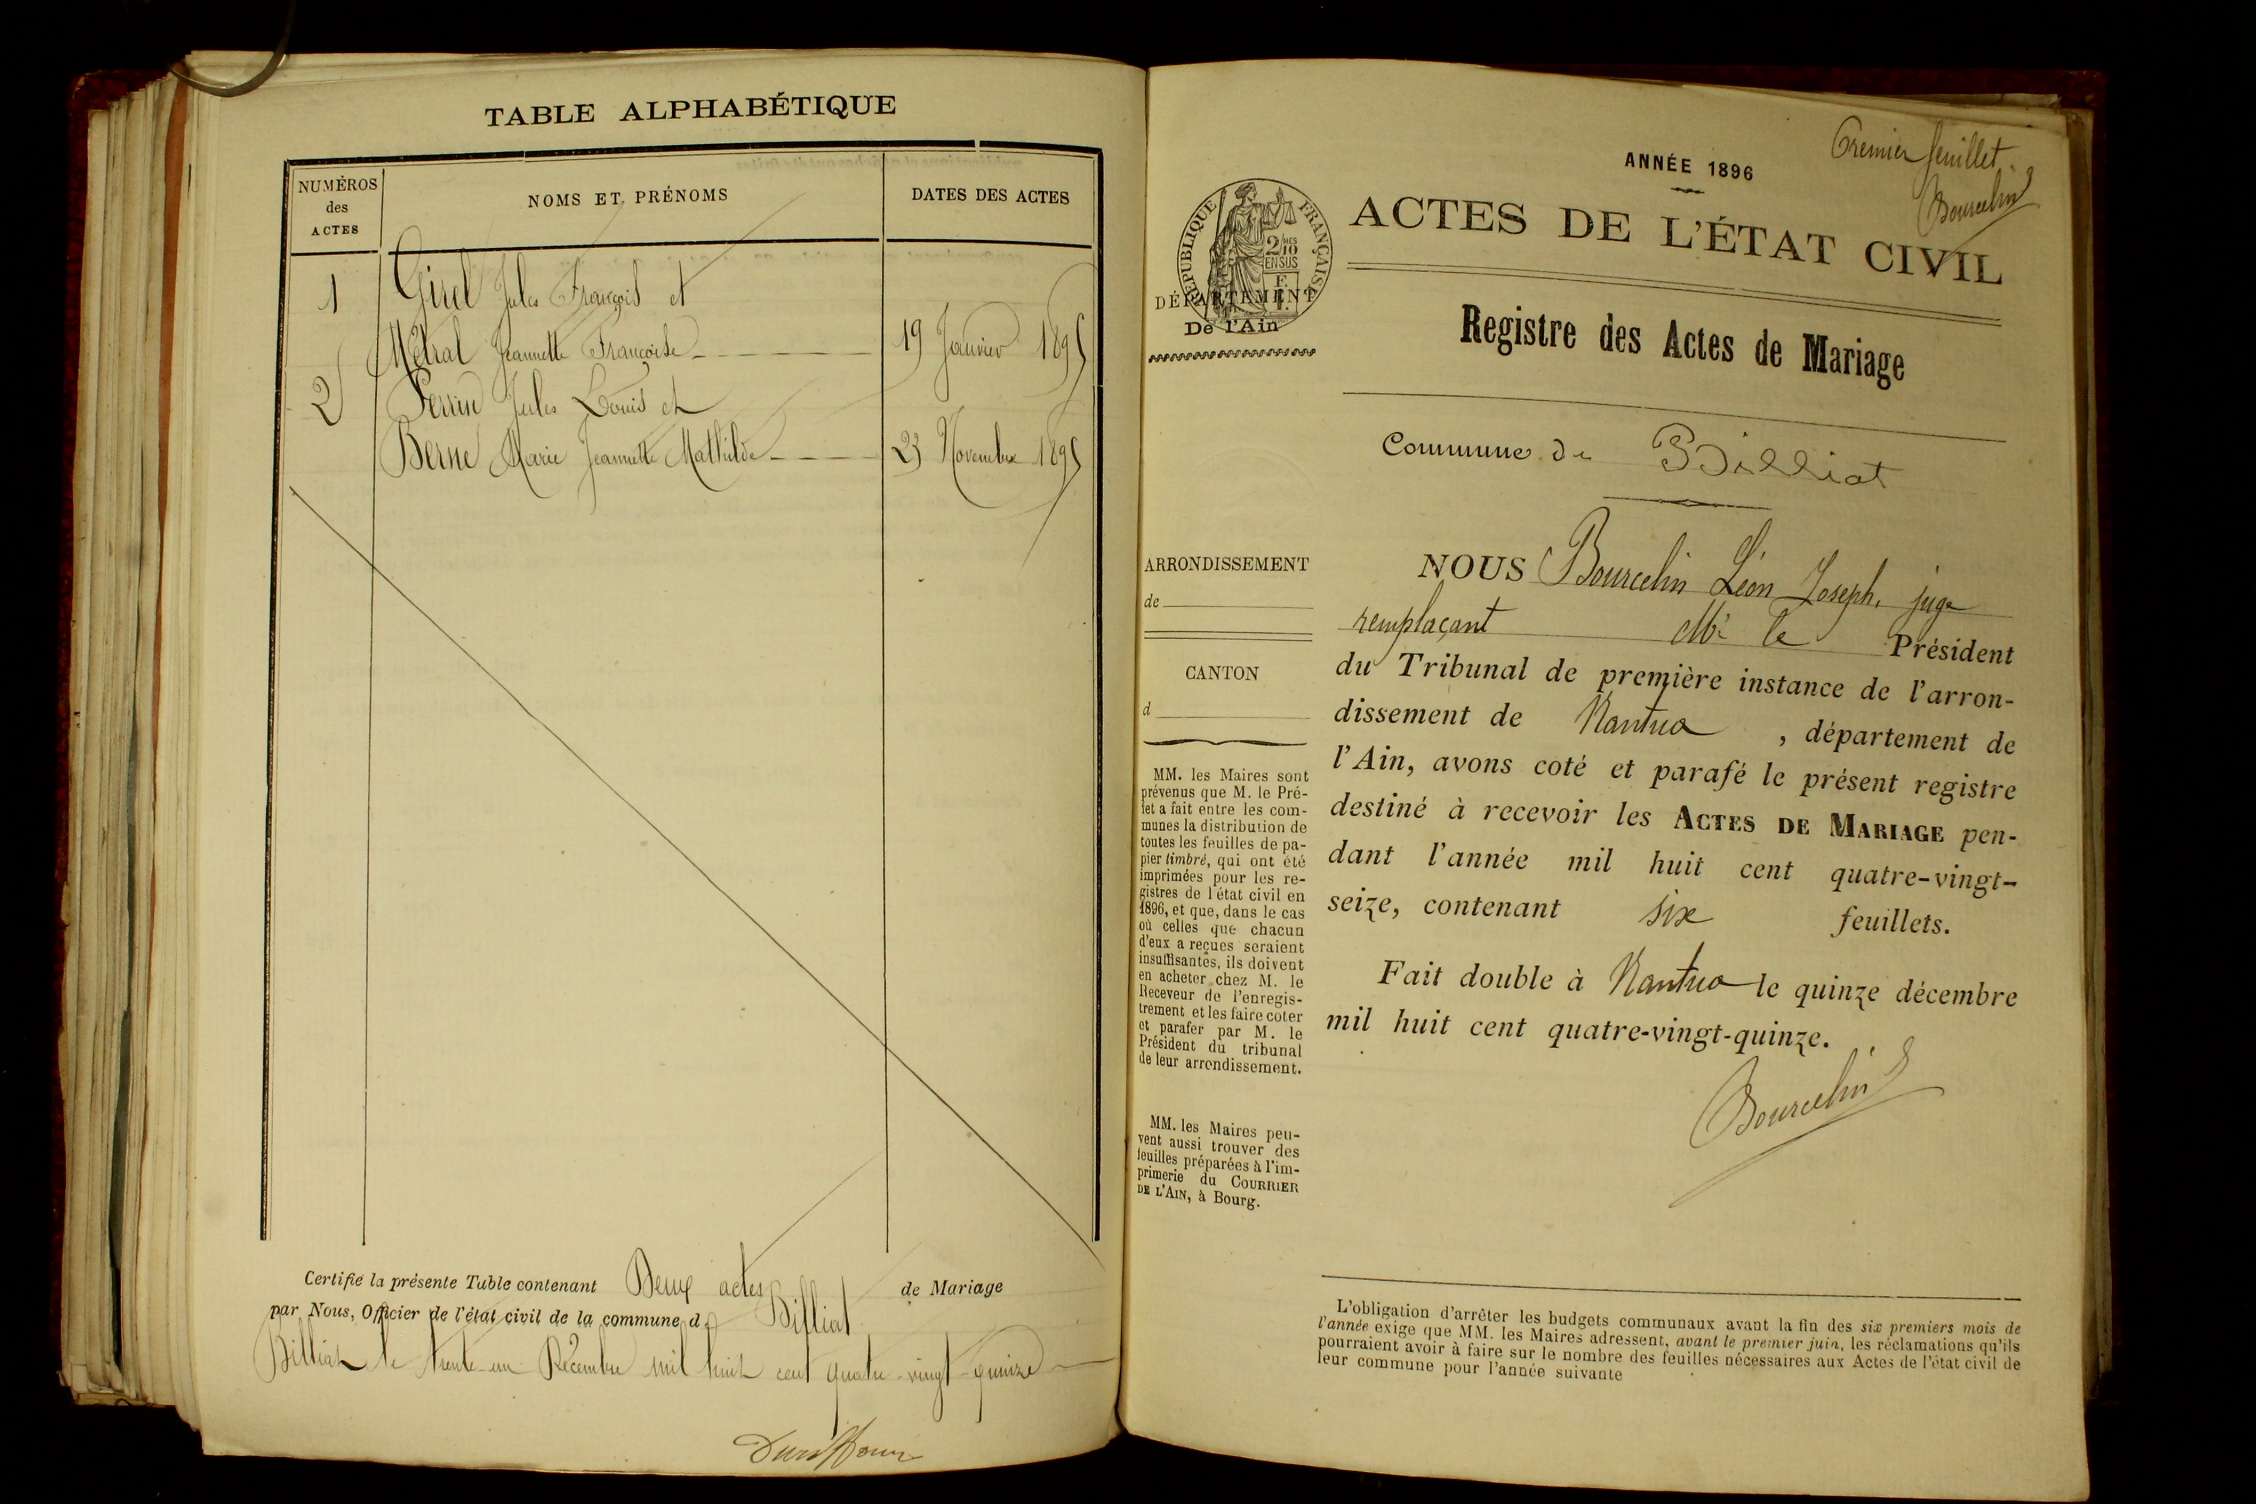 TABLE ALPHABÉTIQUE
NUMÉROS
des
ACTES
NOMS ET PRÉNOMS
DATES DES ACTES
1
Girel Jules François et
Métral Jeannette Françoise
19 Janvier 1895
2
Perrin Jules Louis et
Berne Marie Jeannette Mathilde
23 Novembre 1895
Certifie la présente Table contenant Deux actes de Mariage
par Nous, Officier de l'état civil de la commune d Billiat
Billiat le trente-un Décembre mil huit cent quatre-vingt-quinze
Premier feuillet.
Bourcelin
ANNÉE 1896
ACTES DE L'ÉTAT CIVIL
RÉPUBLIQUE FRANÇAISE
2 MES 10
EN SUS
DÉPARTEMENT
De l'Ain
Registre des Actes de Mariage
Commune de Billiat
ARRONDISSEMENT
de
CANTON
d
MM. les Maires sont
prévenus que M. le Pré-
fet a fait entre les com-
munes la distribution de
toutes les feuilles de pa-
pier timbré, qui ont été
imprimées pour les re-
gistres de l'état civil en
1896, et que, dans le cas
où celles que chacun
d'eux a reçues seraient
insuffisantes, ils doivent
en acheter chez M. le
Receveur de l'enregis-
trement et les faire coter
et parafer par M. le
Président du tribunal
de leur arrondissement.
MM. les Maires peu-
vent aussi trouver des
feuilles préparées à l'im-
primerie du COURRIER
DE L'AIN, à Bourg.
NOUS Bourcelin Léon Joseph, juge
remplaçant Mr le Président
du Tribunal de première instance de l'arron-
dissement de Nantua, département de
l'Ain, avons coté et parafé le présent registre
destiné à recevoir les ACTES DE MARIAGE pen-
dant l'année mil huit cent quatre-vingt-
seize, contenant six feuillets.
Fait double à Nantua le quinze décembre
mil huit cent quatre-vingt-quinze.
Bourcelin
L'obligation d'arrêter les budgets communaux avant la fin des six premiers mois de
l'année exige que MM. les Maires adressent, avant le premier juin, les réclamations qu'ils
pourraient avoir à faire sur le nombre des feuilles nécessaires aux Actes de l'état civil de
leur commune pour l'année suivante